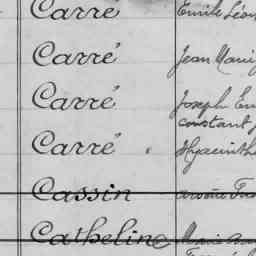 Carré Emile Léon
Carré Jean Marie
Carré Joseph Em
constant
Carré Hyacinthe
Cassin
Catheline Marie